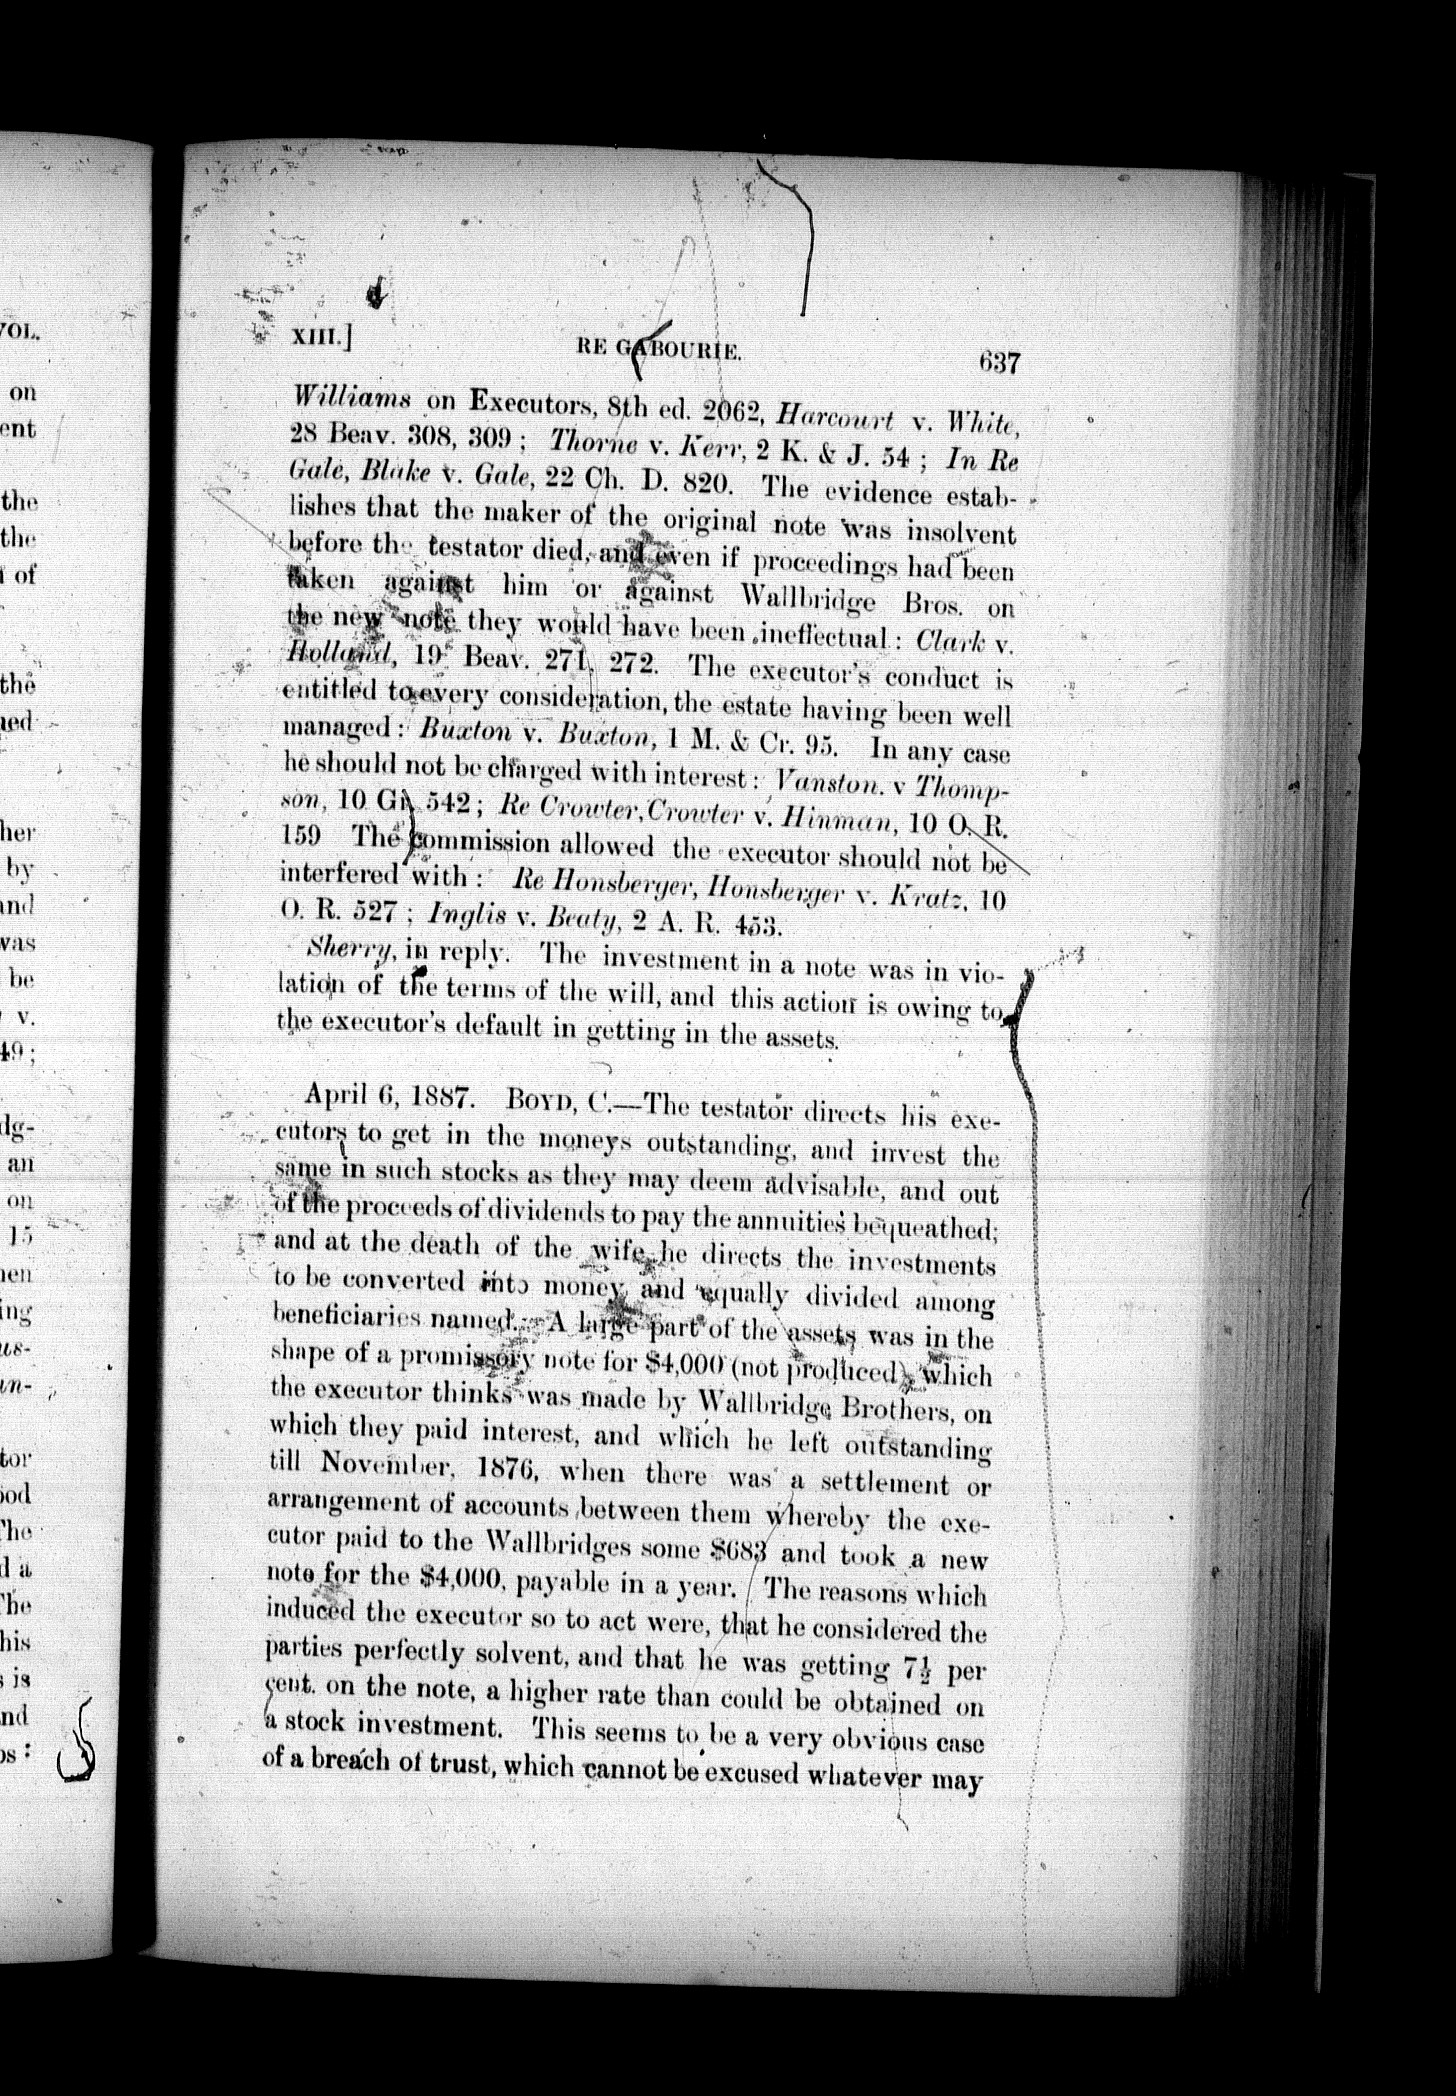 XIII.] RE GABOURIE. 637
Williams on Executors, 8th ed. 2062, Harcourt v. White,
28 Beav. 308, 309 ; Thorne v. Kerr, 2 K. & J. 54 ; In Re
Gale, Blake v. Gale, 22 Ch. D. 820. The evidence estab-
lishes that the maker of the original note was insolvent
before the testator died, and even if proceedings had been
taken against him or against Wallbridge Bros. on
the new note they would have been ineffectual : Clark v.
Holland, 19 Beav. 271, 272. The executor's conduct is
entitled to every consideration, the estate having been well
managed : Buxton v. Buxton, 1 M. & Cr. 95. In any case
he should not be charged with interest : Vanston. v Thomp-
son, 10 Gr. 542 ; Re Crowter, Crowter v. Hinman, 10 O. R.
159 The commission allowed the executor should not be
interfered with : Re Honsberger, Honsberger v. Kratz, 10
O. R. 527 ; Inglis v. Beaty, 2 A. R. 453.
Sherry, in reply. The investment in a note was in vio-
lation of the terms of the will, and this action is owing to
the executor's default in getting in the assets.
April 6, 1887. BOYD, C.—The testator directs his exe-
cutors to get in the moneys outstanding, and invest the
same in such stocks as they may deem advisable, and out
of the proceeds of dividends to pay the annuities bequeathed;
and at the death of the wife he directs the investments
to be converted into money and equally divided among
beneficiaries named. A large part of the assets was in the
shape of a promissory note for $4,000 (not produced), which
the executor thinks was made by Wallbridge Brothers, on
which they paid interest, and which he left outstanding
till November, 1876, when there was a settlement or
arrangement of accounts between them whereby the exe-
cutor paid to the Wallbridges some $683 and took a new
note for the $4,000, payable in a year. The reasons which
induced the executor so to act were, that he considered the
parties perfectly solvent, and that he was getting 7½ per
cent. on the note, a higher rate than could be obtained on
a stock investment. This seems to be a very obvious case
of a breach of trust, which cannot be excused whatever may